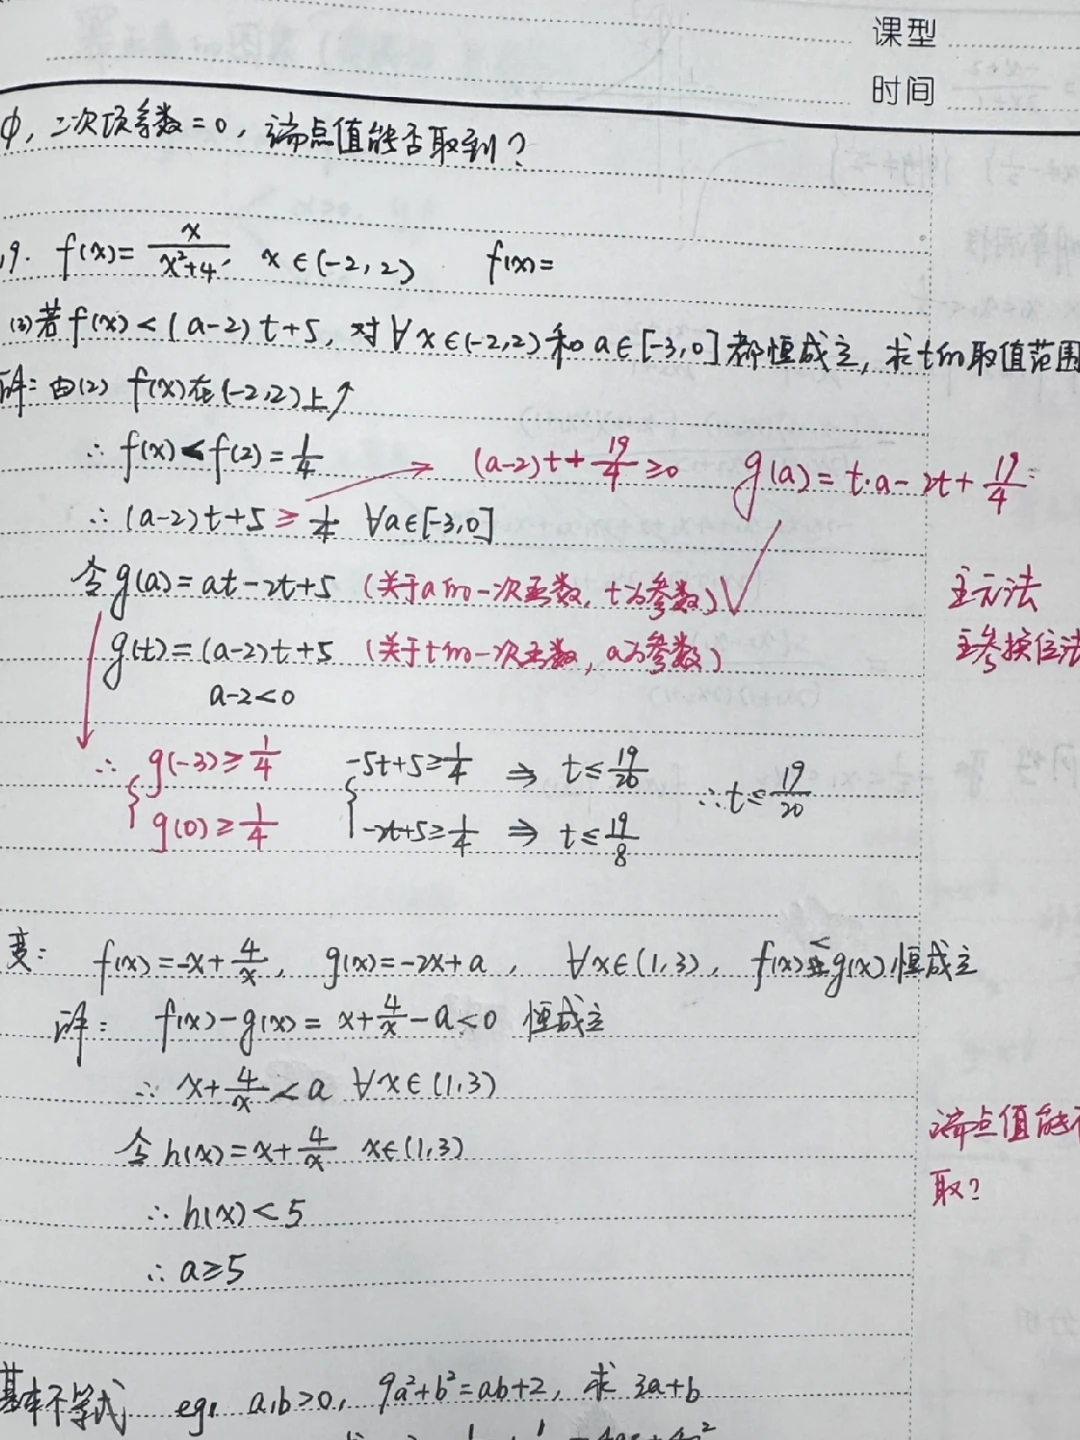 课型
时间
φ, 二次项系数=0, 端点值能否取到?
19. f(x)=x/(x²+4), x∈(-2,2) f(x)=
(3)若f(x)<(a-2)t+5, 对∀x∈(-2,2)和a∈[-3,0]都恒成立, 求t的取值范围
解: 由(2) f(x)在(-2,2)上↑
∴ f(x)<f(2)=1/4 → (a-2)t+19/4≥0 g(a)=t·a-2t+19/4
∴ (a-2)t+5≥1/4 ∀a∈[-3,0]
令g(a)=at-2t+5 (关于a的一次函数, t为参数) 主元法
g(t)=(a-2)t+5 (关于t的一次函数, a为参数) 主参换位法
a-2<0
∴ { g(-3)≥1/4 { -5t+5≥1/4 ⇒ t≤19/20 ∴t≤19/20
g(0)≥1/4 -2t+5≥1/4 ⇒ t≤19/8
变: f(x)=-x+4/x, g(x)=-2x+a, ∀x∈(1,3), f(x)<g(x)恒成立
解: f(x)-g(x)=x+4/x-a<0 恒成立
∴ x+4/x<a ∀x∈(1,3)
令h(x)=x+4/x x∈(1,3) 端点值能否
取?
∴ h(x)<5
∴ a≥5
基本不等式 eg1 a,b>0, 9a²+b²=ab+2, 求3a+b